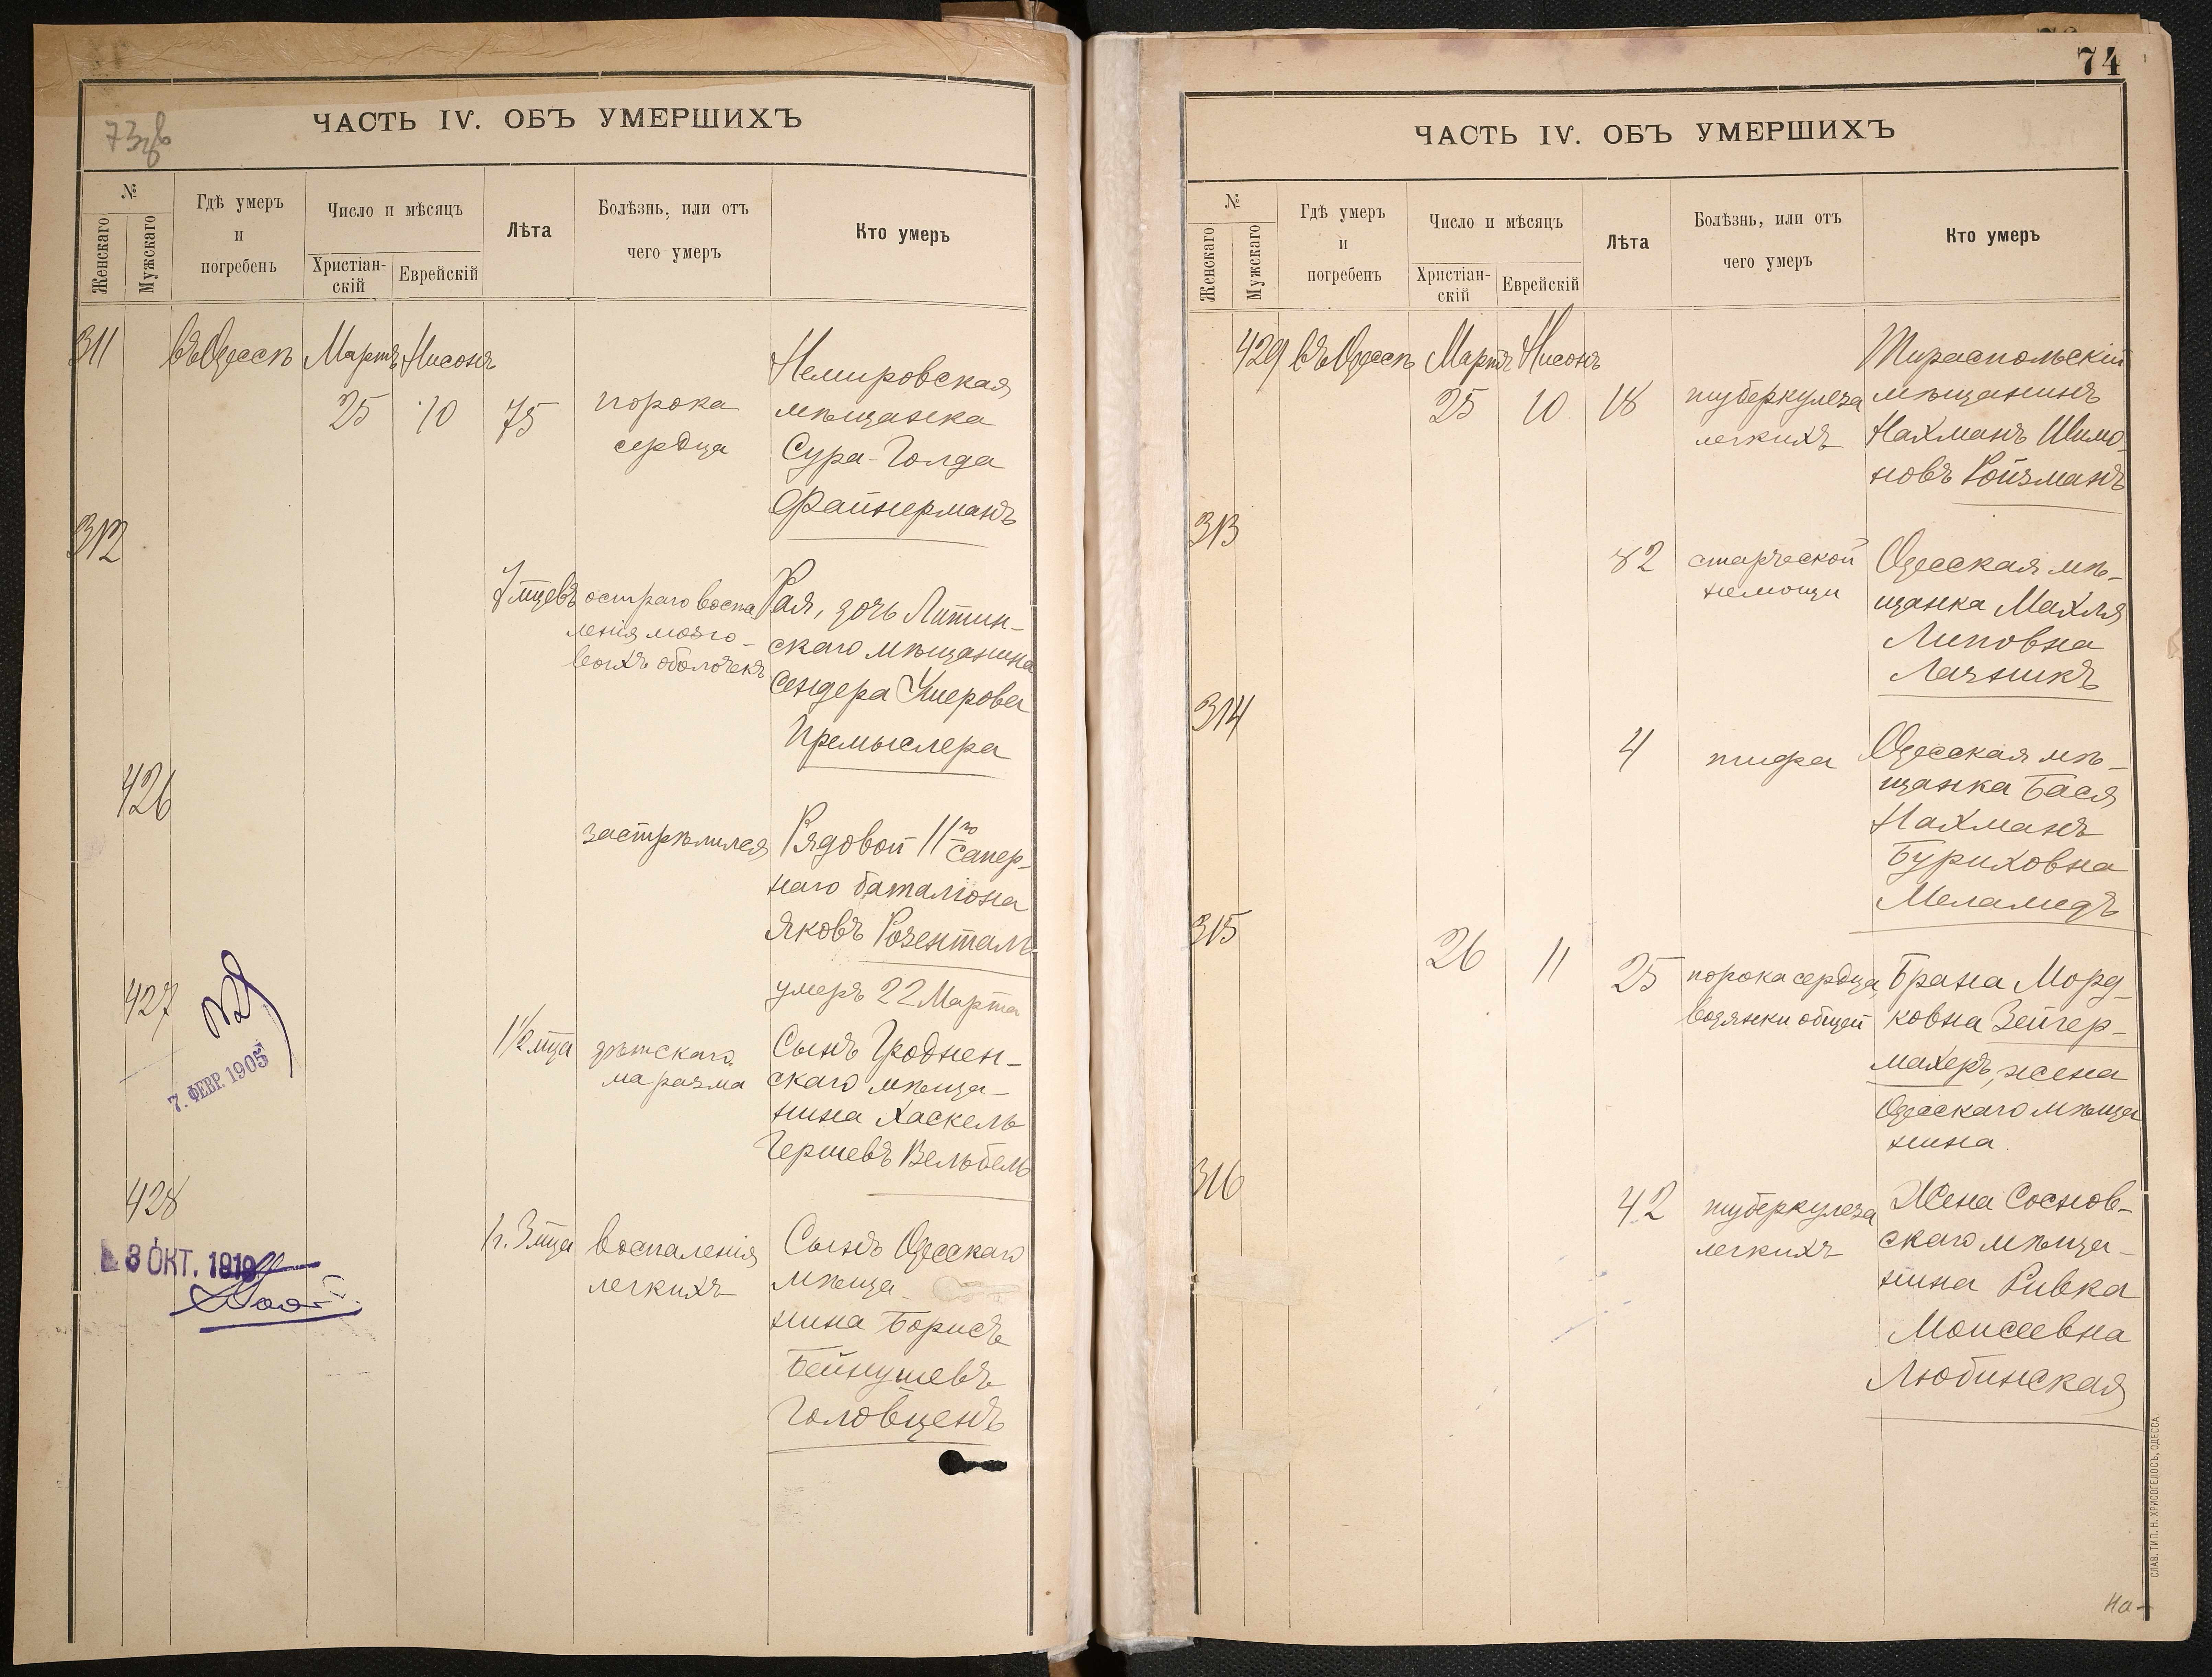 73об
ЧАСТЬ IV. ОБЪ УМЕРШИХЪ
№
Женскаго
Мужскаго
Гдѣ умеръ
и
погребенъ
Число и мѣсяцъ
Христіан-
скій
Еврейскій
Лѣта
Болѣзнь, или отъ
чего умеръ
Кто умеръ
311 въ Одессѣ Мартъ Нисонъ
25 10 75
порока
сердца
Немировская
мѣщанка
Сура-Голда
Файнерманъ
312
7 мцевъ
остраго воспа
ленія мозго-
выхъ оболочекъ
Рая, дочь Литин-
скаго мѣщанина
Сендера Умерова
Премыслера
426
застрѣлился
Рядовой 11го Сапер-
наго баталіона
Яковъ Розенталь
умеръ 22 Марта
427
1½ мца
дѣтскаго
маразма
Сынъ Гроднен-
скаго мѣща-
нина Хаскель
Гершевъ Вельбель
7. ФЕВР. 1905
428
1 г. 3 мца
воспаленія
легкихъ
Сынъ Одесскаго
мѣща-
нина Борисъ
Бейнушевъ
Головценъ
8 ОКТ. 1919
74
ЧАСТЬ IV. ОБЪ УМЕРШИХЪ
№
Женскаго
Мужскаго
Гдѣ умеръ
и
погребенъ
Число и мѣсяцъ
Христіан-
скій
Еврейскій
Лѣта
Болѣзнь, или отъ
чего умеръ
Кто умеръ
429 въ Одессѣ Мартъ Нисонъ
25 10 18
туберкулеза
легкихъ
Тираспольскій
мѣщанинъ
Нахманъ Шимо-
новъ Ройзманъ
313
82
старческой
немощи
Одесская мѣ-
щанка Махля
Липовна
Лачникъ
314
4
тифа
Одесская мѣ-
щанка Бася
Нахманъ
Буриховна
Меламедъ
315
26 11 25
порока сердца,
водянки общей
Брана Морд-
ковна Зейгер-
махеръ, жена
Одесскаго мѣща
нина.
316
42
туберкулеза
легкихъ
Жена Соснов-
скаго мѣща-
нина Ривка
Моисеевна
Любинская
СЛАВ. ТИП. Н. ХРИСОГЕЛОСЪ, ОДЕССА.
На-